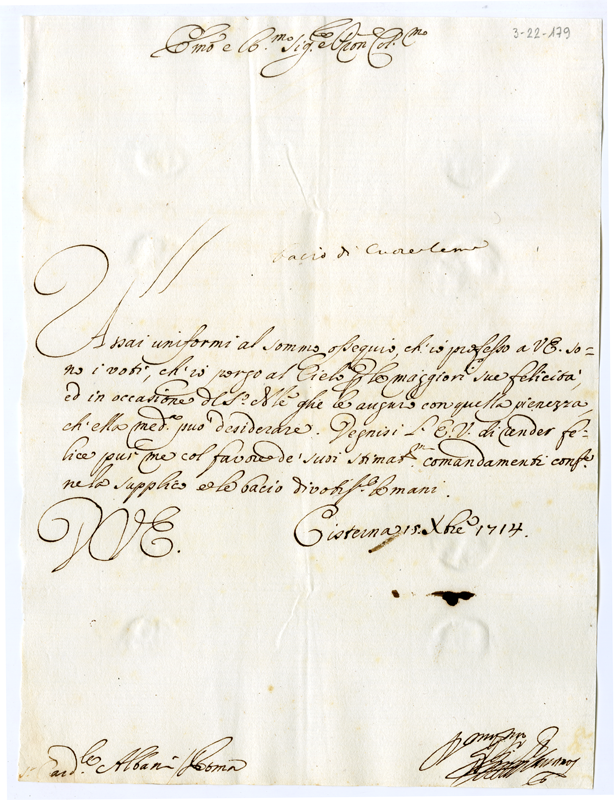 3-22-179
Em̃o e R.mo Sig.re e Pron Col.mo
bacio di Cuore le m
Assai uniformi al sommo ossequio, ch'io professo a V.E. so-
no i voti, ch'io porgo al Cielo p le maggiori sue felicità,
ed in occasione del S.o Nle ghe le auguro con quella pienezza,
ch'ella med.a può desiderare. Degnisi l'E.V. di render fe-
lice pur me col favore de' suoi stimat.mi comandamenti conf.e
ne la supplico e le bacio divotiss.e le mani.
D V E.
Cisterna 15 Xbre 1714.
Card.le Albani Roma